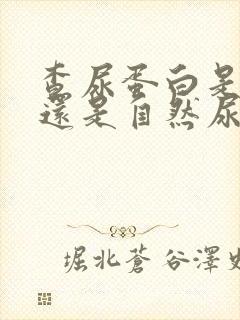 查尿蛋白是
還是自然尿
堀北蒼 谷澤